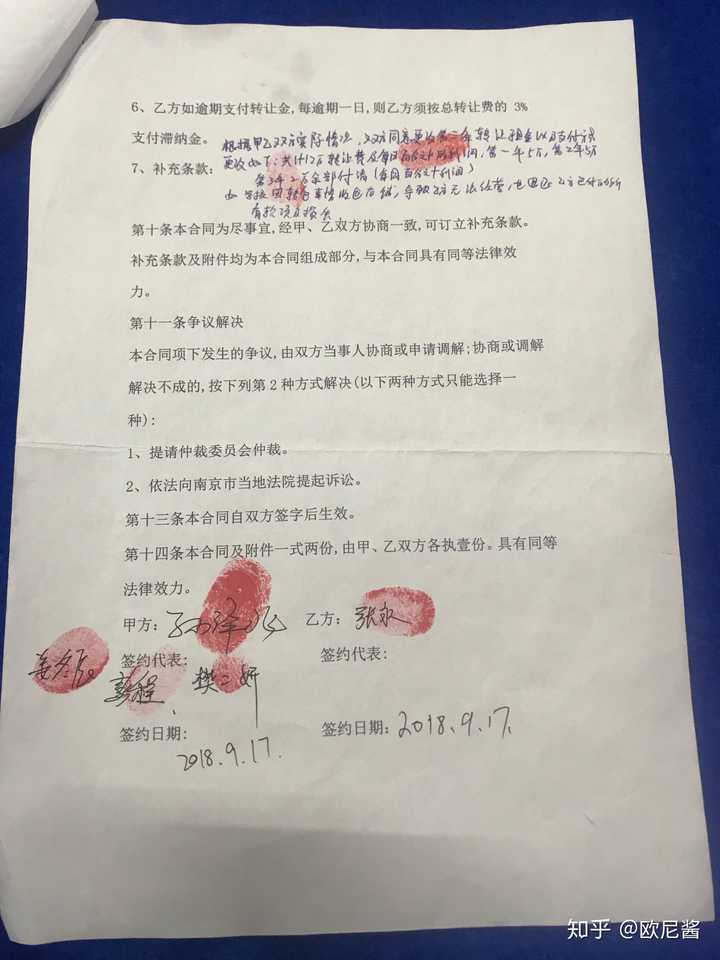 6、乙方如逾期支付转让金,每逾期一日,则乙方须按总转让费的 3%
支付滞纳金。 根据甲乙双方实际情况,双方同意更改第二条转让租金以及支付说
7、补充条款: 更改如下:共计12万转让费及每月百分之十的利润,第一年5万,第2年5万
第3年2万全部付清(每月百分之十利润)
有款项及损失
第十条本合同为尽事宜,经甲、乙双方协商一致,可订立补充条款。
补充条款及附件均为本合同组成部分,与本合同具有同等法律效
力。
第十一条争议解决
本合同项下发生的争议,由双方当事人协商或申请调解;协商或调解
解决不成的,按下列第2种方式解决(以下两种方式只能选择一
种):
1、提请仲裁委员会仲裁。
2、依法向南京市当地法院提起诉讼。
第十三条本合同自双方签字后生效。
第十四条本合同及附件一式两份,由甲、乙双方各执壹份。具有同等
法律效力。
甲方: 乙方:
签约代表: 签约代表:
樊二妍
签约日期: 签约日期: 2018.9.17.
2018.9.17.
知乎 @欧尼酱